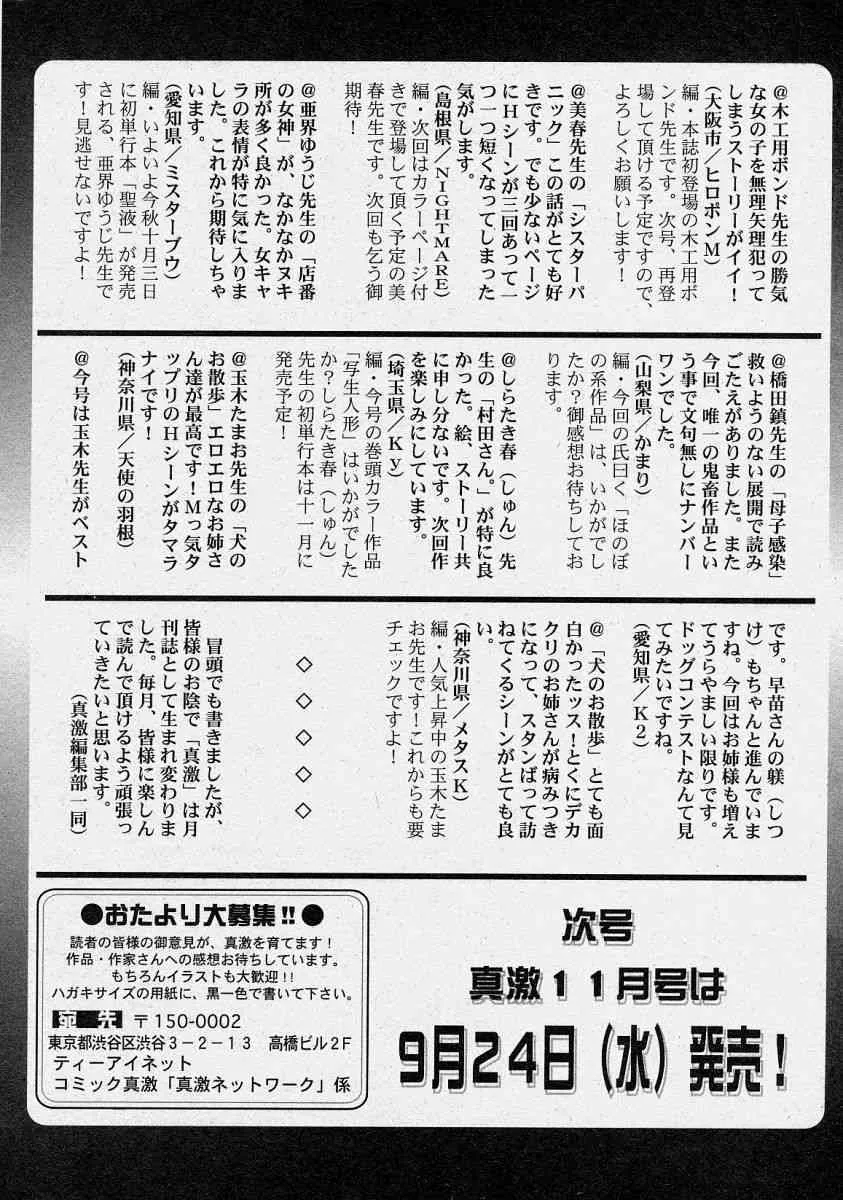 @木工用ボンド先生の勝気
な女の子を無理矢理犯って
しまうストーリーがイイ!
(大阪市/ヒロポンM)
編・本誌初登場の木工用ボ
ンド先生です。次号、再登
場して頂ける予定ですので、
よろしくお願いします!
@美春先生の「シスターパ
ニック」この話がとても好
きです。でも少ないページ
にHシーンが三回あって一
つ一つ短くなってしまった
気がします。
(島根県/NIGHTMARE)
編・次回はカラーページ付
きで登場して頂く予定の美
春先生です。次回も乞う御
期待!
@亜界ゆうじ先生の「店番
の女神」が、なかなかヌキ
所が多く良かった。女キャ
ラの表情が特に気に入りま
した。これから期待しちゃ
います。
(愛知県/ミスターブウ)
編・いよいよ今秋十月三日
に初単行本「聖液」が発売
される、亜界ゆうじ先生で
す!見逃せないですよ!
@橋田鎮先生の「母子感染」
救いようのない展開で読み
ごたえがありました。また
今回、唯一の鬼畜作品とい
う事で文句無しにナンバー
ワンでした。
(山梨県/かまり)
編・今回の氏曰く「ほのぼ
の系作品」は、いかがでし
たか?御感想お待ちしてお
ります。
@しらたき春(しゅん)先
生の「村田さん。」が特に良
かった。絵、ストーリー共
に申し分ないです。次回作
を楽しみにしています。
(埼玉県/Ky)
編・今号の巻頭カラー作品
「写生人形」はいかがでした
か?しらたき春(しゅん)
先生の初単行本は十一月に
発売予定!
@玉木たまお先生の「犬の
お散歩」エロエロなお姉さ
ん達が最高です!Mっ気タ
ップリのHシーンがタマラ
ナイです!
(神奈川県/天使の羽根)
@今号は玉木先生がベスト
です。早苗さんの躾(しつ
け)もちゃんと進んでいま
すね。今回はお姉様も増え
てうらやましい限りです。
ドッグコンテストなんて見
てみたいですね。
(愛知県/K2)
@「犬のお散歩」とても面
白かったッス!とくにデカ
クリのお姉さんが病みつき
になって、スタンばって訪
ねてくるシーンがとても良
い。
(神奈川県/メタスK)
編・人気上昇中の玉木たま
お先生です!これからも要
チェックですよ!
◇◇◇◇◇
冒頭でも書きましたが、
皆様のお陰で「真激」は月
刊誌として生まれ変わりま
した。毎月、皆様に楽しん
で読んで頂けるよう頑張っ
ていきたいと思います。
(真激編集部一同)
次号
真激11月号は
9月24日(水)発売!
●おたより大募集!!●
読者の皆様の御意見が、真激を育てます!
作品・作家さんへの感想お待ちしています。
もちろんイラストも大歓迎!!
ハガキサイズの用紙に、黒一色で書いて下さい。
宛先 〒150-0002
東京都渋谷区渋谷3-2-13 高橋ビル2F
ティーアイネット
コミック真激「真激ネットワーク」係